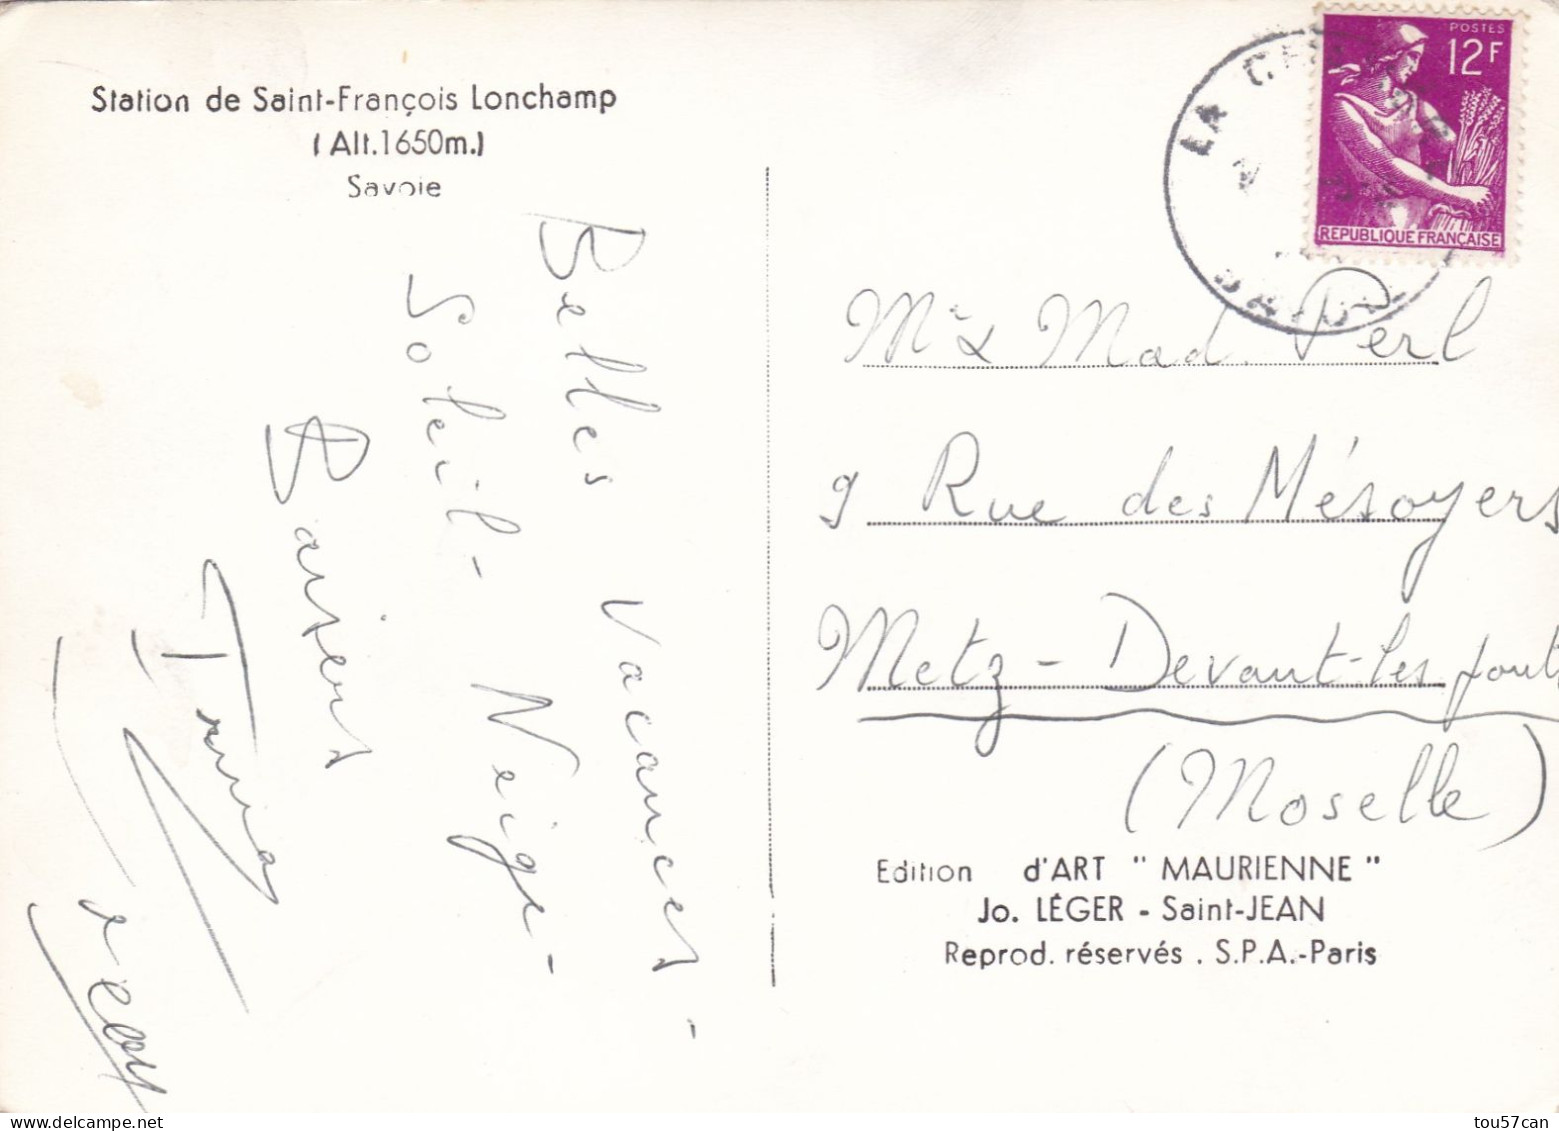 Station de Saint-François Lonchamp
(Alt.1650m.)
Savoie
Belles Vacances -
Soleil - Neige -
Baisers
POSTES
12F
REPUBLIQUE FRANÇAISE
LA
Mr & Mad. Perl
9 Rue des Mésoyers
Metz - Devant-les-ponts
(Moselle)
Edition d'ART " MAURIENNE "
Jo. LÉGER - Saint-JEAN
Reprod. réservés . S.P.A.-Paris
tou57can